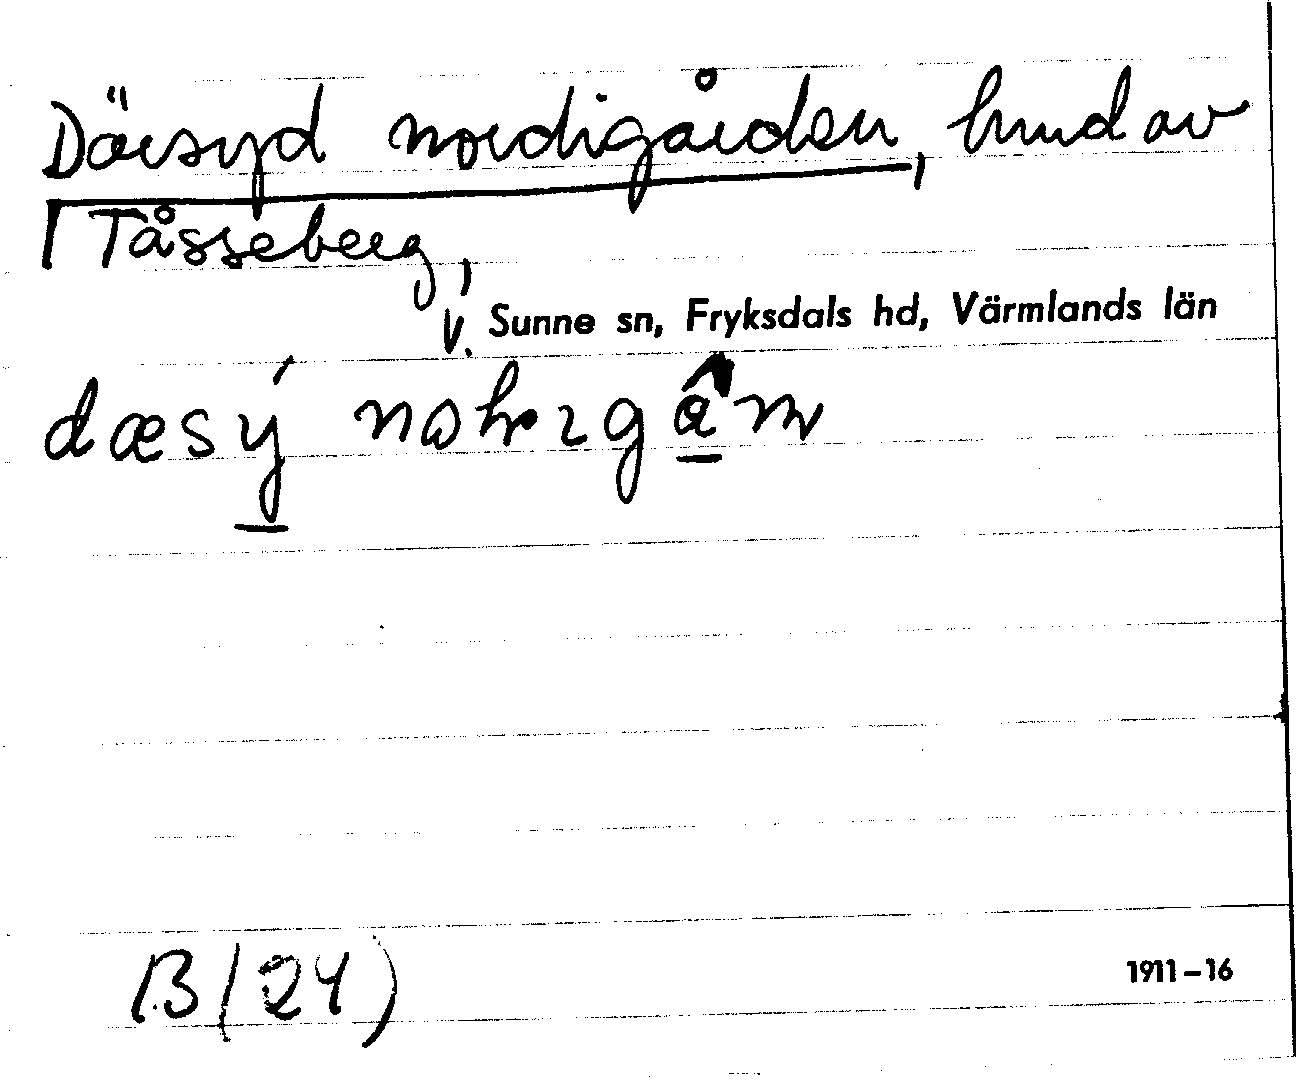 Därsyd nordigården, hmd av
Tåsseberg,
V. Sunne sn, Fryksdals hd, Värmlands län
B(24)
1911–16